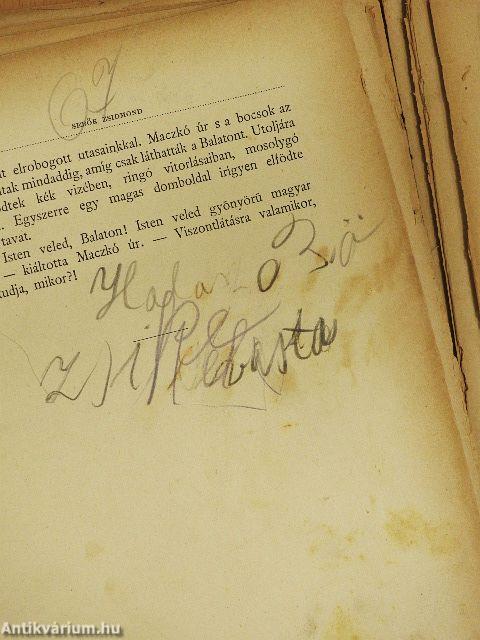 SEBŐK ZSIGMOND
t elrobogott utasainkkal. Maczkó úr s a bocsok az
tak mindaddig, amíg csak láthatták a Balatont. Utoljára
dtek kék vizében, ringó vitorlásaiban, mosolygó
. Egyszerre egy magas domboldal irigyen elfödte
tavat.
Isten veled, Balaton! Isten veled gyönyörű magyar
— kiáltotta Maczkó úr. — Viszontlátásra valamikor,
tudja, mikor?!
Antikvárium.hu